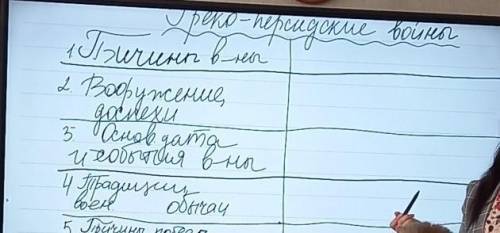 Греко-персидские войны
1 Причины в-ны
2. Вооружение,
доспехи
3. Основ дата
и события в-ны
4 Традиции
воен обычаи
5 Причины победы